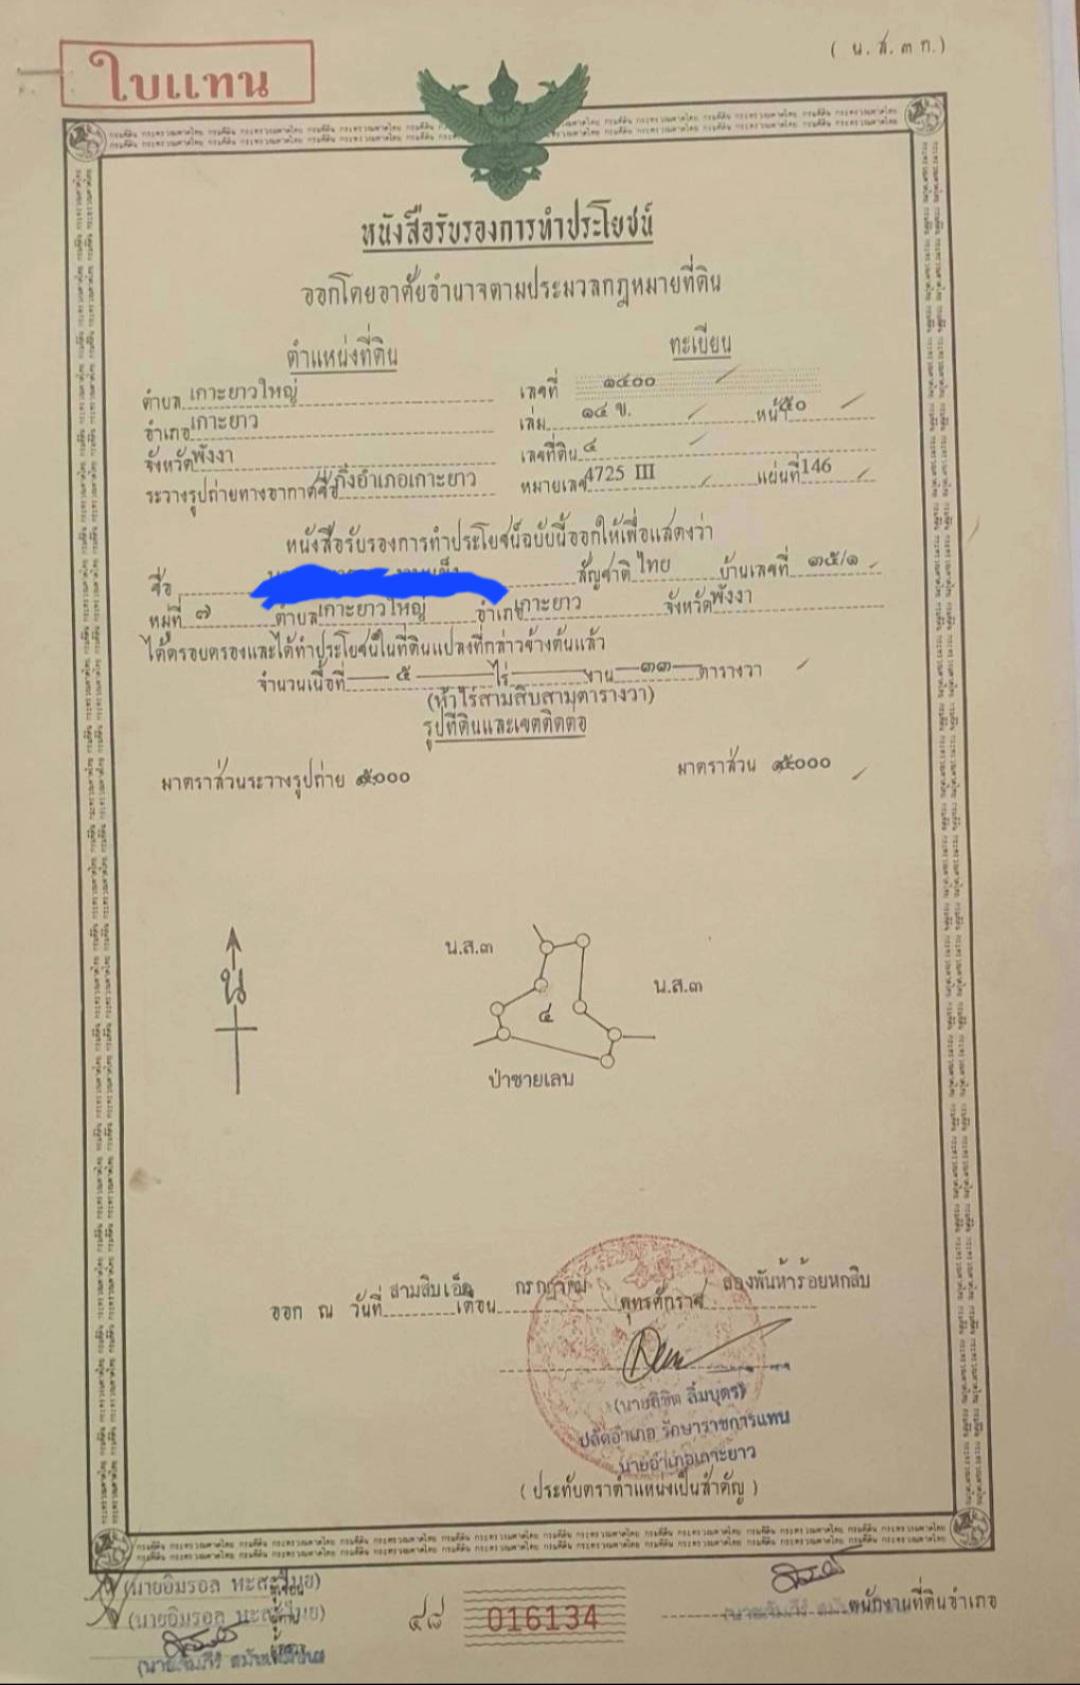 ( น.ส.๓ ก.)
ใบแทน
หนังสือรับรองการทำประโยชน์
ออกโดยอาศัยอำนาจตามประมวลกฎหมายที่ดิน
ตำแหน่งที่ดิน
ทะเบียน
ตำบล เกาะยาวใหญ่
เลขที่ ๑๔๐๐
อำเภอ เกาะยาว
เล่ม ๑๔ ข. หน้า ๕๐
จังหวัด พังงา
เลขที่ดิน ๔
ระวางรูปถ่ายทางอากาศชื่อ กิ่งอำเภอเกาะยาว
หมายเลข 4725 III แผ่นที่ 146
หนังสือรับรองการทำประโยชน์ฉบับนี้ออกให้เพื่อแสดงว่า
ชื่อ สัญชาติ ไทย บ้านเลขที่ ๓๕/๑
หมู่ที่ ๗ ตำบล เกาะยาวใหญ่ อำเภอ เกาะยาว จังหวัด พังงา
ได้ครอบครองและได้ทำประโยชน์ในที่ดินแปลงที่กล่าวข้างต้นแล้ว
จำนวนเนื้อที่ ๕ ไร่ งาน ๓๓ ตารางวา
(ห้าไร่สามสิบสามตารางวา)
รูปที่ดินและเขตติดต่อ
มาตราส่วนระวางรูปถ่าย
มาตราส่วน
น.ส.๓
น.ส.๓
น
๔
ป่าชายเลน
ออก ณ วันที่ สามสิบเอ็ด เดือน กรกฎาคม พุทธศักราช สองพันห้าร้อยหกสิบ
(นายลิขิต ลิ้มบุตร)
ปลัดอำเภอ รักษาราชการแทน
นายอำเภอเกาะยาว
( ประทับตราตำแหน่งเป็นสำคัญ )
(นายอิมรอล
(นายอิมรอล
๔๘ 016134
พนักงานที่ดินอำเภอ